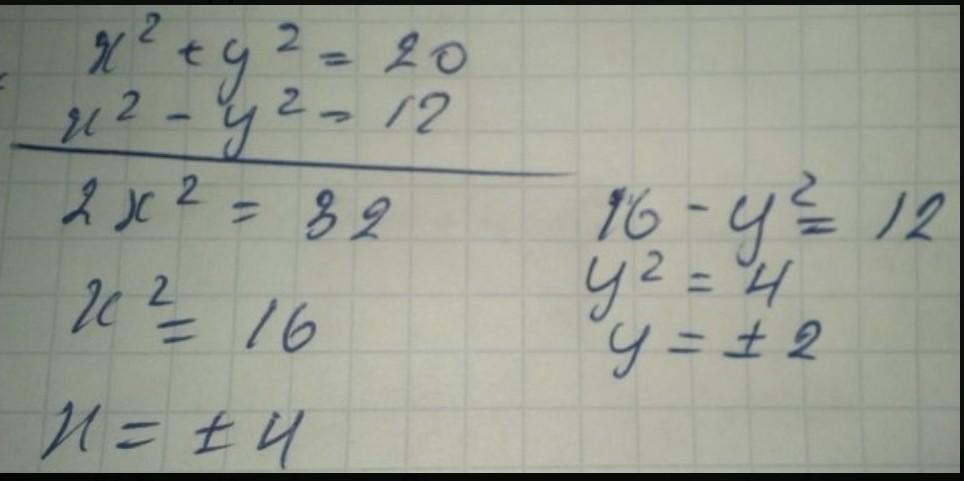 x² + y² = 20
x² - y² = 12
2x² = 32
x² = 16
x = ± 4
16 - y² = 12
y² = 4
y = ± 2